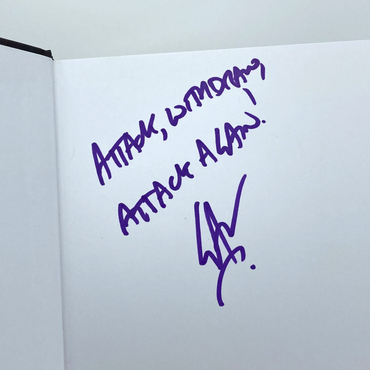 ATTACK, WITHDRAW,
ATTACK AGAIN!